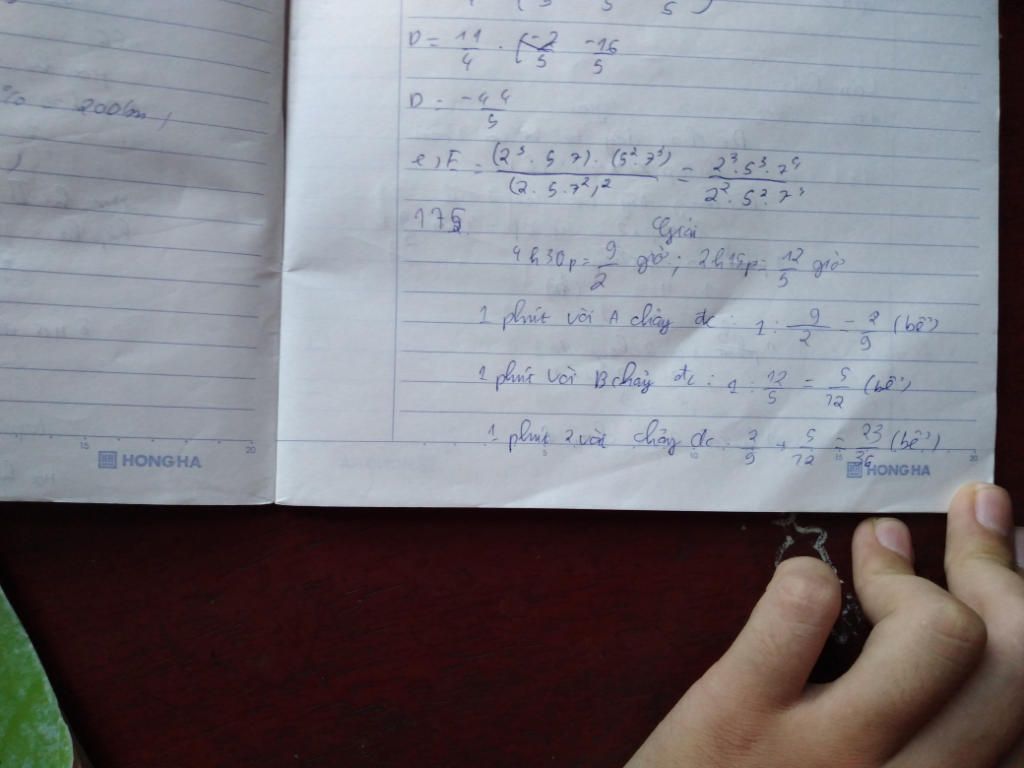 % = 200 km,
D = 11/4 · -2/5 -16/5
D = -44/5
e, E = (2³ · 5 · 7) · (5² · 7³) / (2 · 5 · 7²)² = 2³ · 5³ · 7⁴ / 2² · 5² · 7⁴
175 Giải
4h30p = 9/2 giờ ; 2h15p = 12/5 giờ
1 phút vòi A chảy đc : 1 : 9/2 = 2/9 (bể)
1 phút vòi B chảy đc : 1 : 12/5 = 5/12 (bể)
1 phút 2 vòi chảy đc : 2/9 + 5/12 = 23/36 (bể)
15 20 HONG HA
5 10 15 20 HONG HA